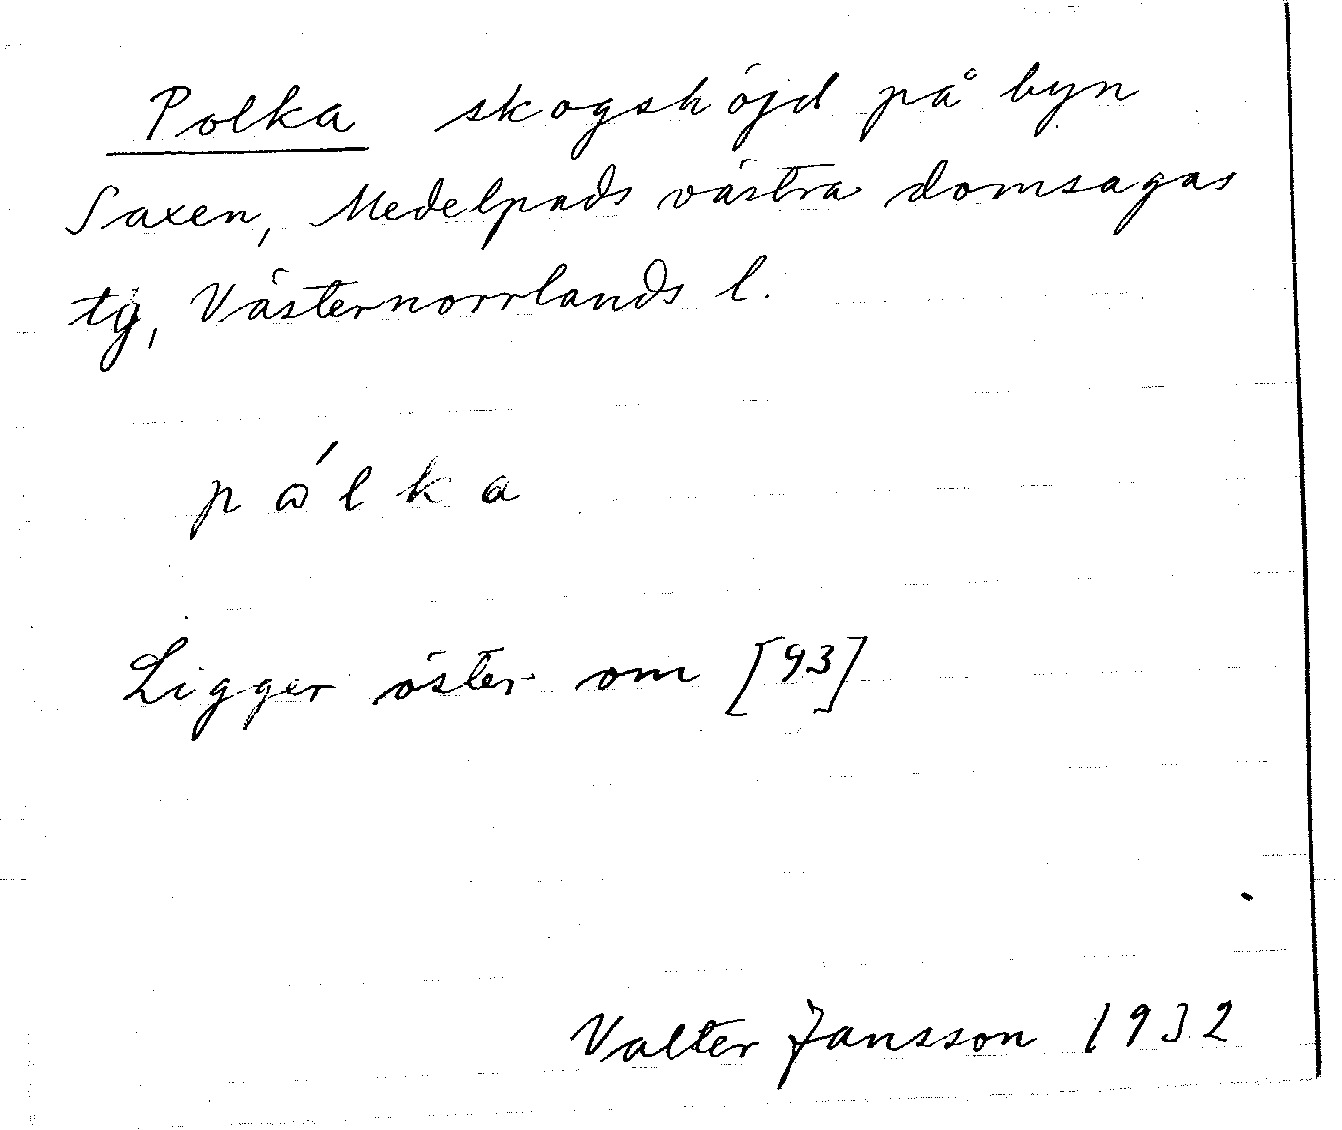 Polka skogshöjd på byn
Saxen, Medelpads västra domsagas
tg, Västernorrlands l.
pålka
Ligger öster om [93]
Valter Jansson 1932